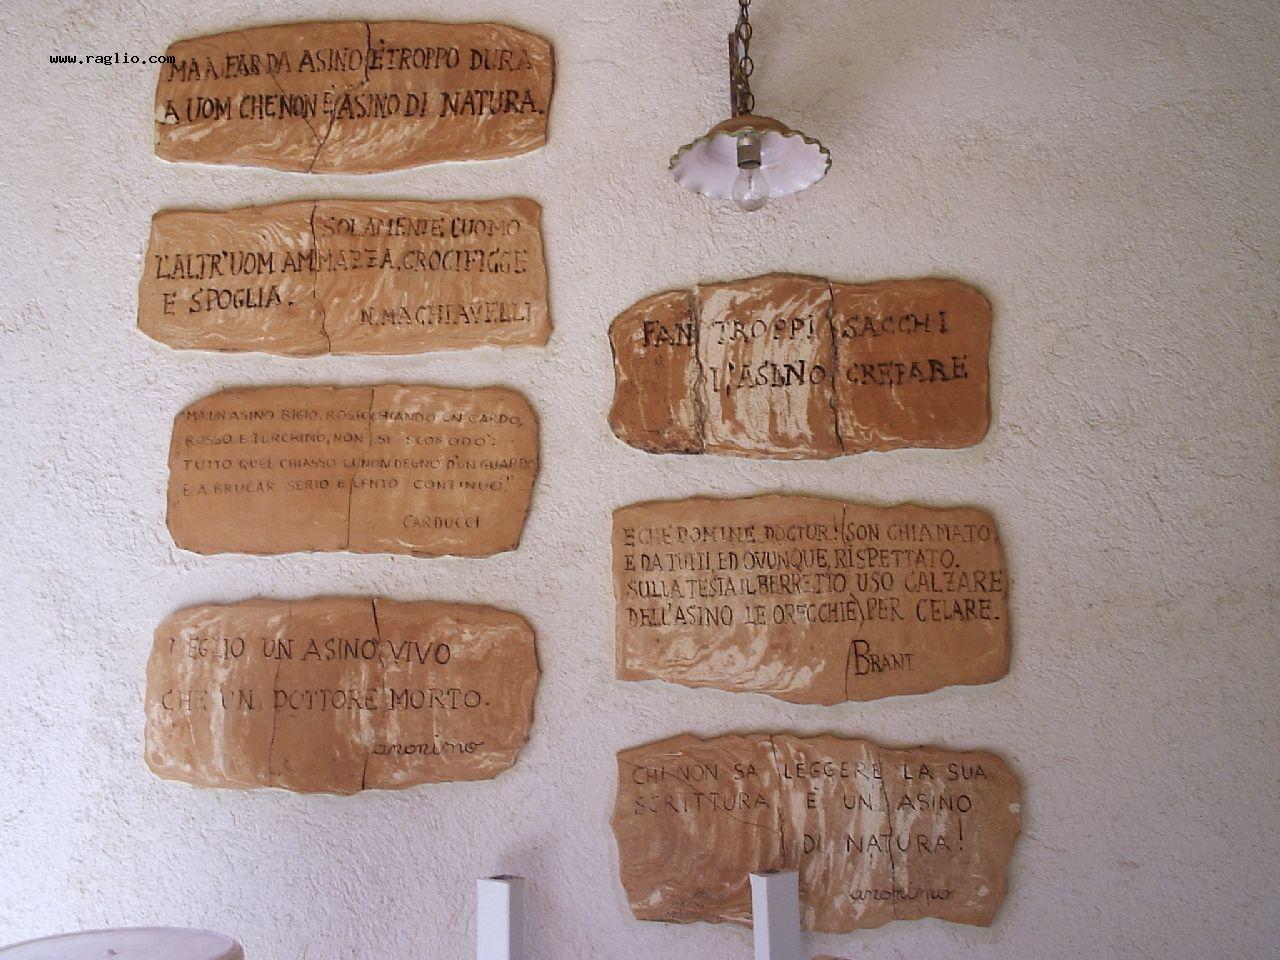 www.raglio.com
MA A FAR DA ASINO È TROPPO DURA
A UOM CHE NON È ASINO DI NATURA.
SOLAMENTE L'UOMO
L'ALTR'UOM AMMAZZA, CROCIFIGGE
E SPOGLIA.
N. MACHIAVELLI
"MA UN ASINO BIGIO, ROSICCHIANDO UN CARDO,
ROSSO E TURCHINO, NON SI SCOMODÒ:
TUTTO QUEL CHIASSO EI NON DEGNÒ D'UN GUARDO
E A BRUCAR SERIO E LENTO CONTINUÒ."
CARDUCCI
MEGLIO UN ASINO VIVO
CHE UN DOTTORE MORTO.
anonimo
FAN TROPPI SACCHI
L'ASINO CREPARE
E CHE DOMINE DOCTOR! SON CHIAMATO
E DA TUTTI, ED OVUNQUE, RISPETTATO.
SULLA TESTA IL BERRETTO USO CALZARE
DELL'ASINO LE ORECCHIE PER CELARE.
BRANT
CHI NON SA LEGGERE LA SUA
SCRITTURA È UN ASINO
DI NATURA!
anonimo